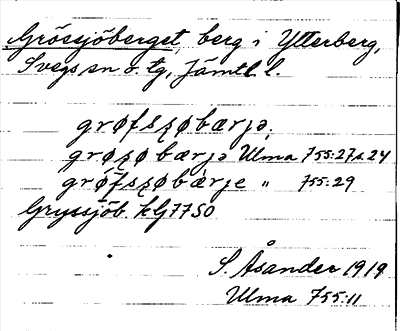 Grössjöberget, berg i Ytterberg,
Svegs sn o. tg, Jämtl. l.
grøfsʂøbærjə,
grøʂøbærjə Ulma 755:27 s. 24
grøfsʂøbærje " 755:29
Gryssjöb. kfg 77 SO
S. Åsander 1919
Ulma 755:11